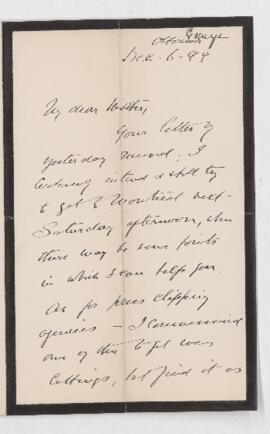 Ottawa
Dec. 6. 99
My dear
Your letter of
yesterday received. I
certainly intend & still try
to get to Montreal next
Saturday afternoon, when
there may be some points
in which I can help you.
As for press clipping
agencies — I commissioned
one of them to get
cuttings, but find it as